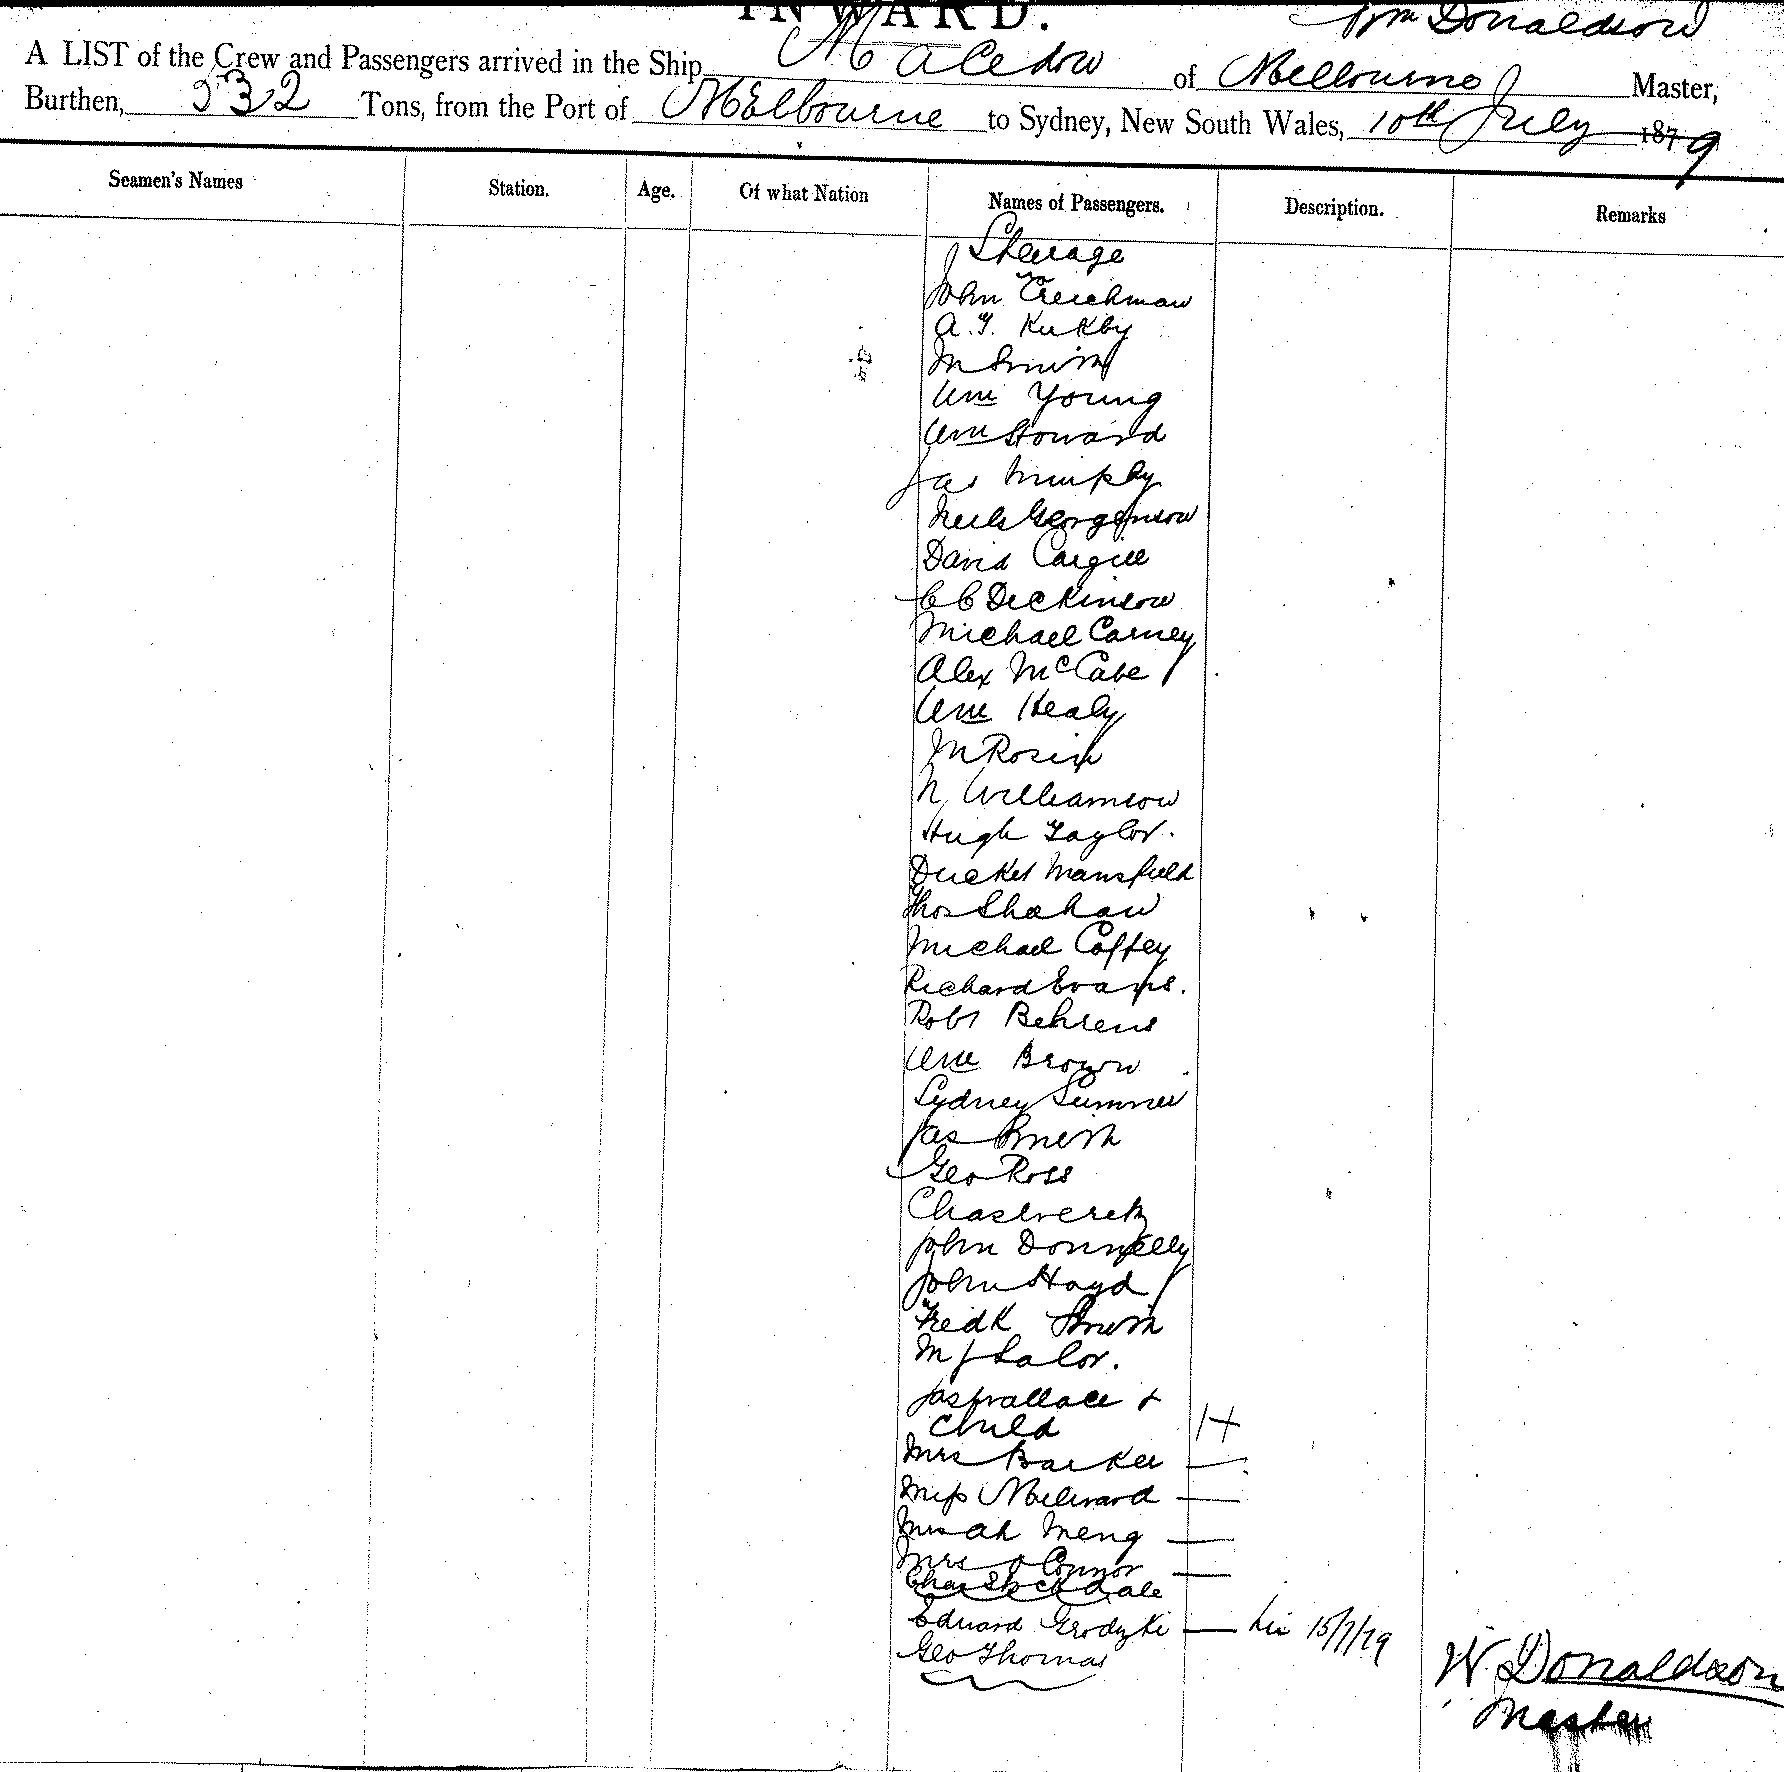 INWARD.
A LIST of the Crew and Passengers arrived in the Ship Macedon of Melbourne Wm Donaldson Master,
Burthen, 532 Tons, from the Port of Melbourne to Sydney, New South Wales, 10th July 1879
Seamen's Names Station. Age. Of what Nation Names of Passengers. Description. Remarks
Steerage
John Creichman
A. F. Kirkby
M Smith
Wm Young
Wm Howard
Jas Murphy
Neils Georgenson
David Cargill
C C Dickinson
Michael Carney
Alex McCabe
Wm Healy
M Rosin
N Williamson
Hugh Taylor.
Ducket Mansfield
Thos Shahan
Michael Coffey
Richard Evans.
Robt Behrens
Wm Brown
Sydney Sumner
Jas Smith
Geo Ross
Chas
John Donnelly
John Hoyd
Fredk Smith
M J Lalor.
Jas Wallace +
Child
Mrs Barker —
Miss Milward —
Mrs Ah Meng —
Mrs O Connor —
Chas Stockdale
Edward Grodzki — 15/7/79
Geo Thomas
W. Donaldson
Master